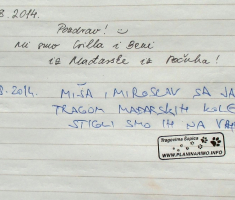 8.2014.
Pozdrav! ☺
Mi smo Csilla i Beni
iz Mađarske iz
8.2014. MIŠA I MIROSLAV SA
TRAGOM MAĐARSKIH KOLE
STIGLI SMO IH NA
Tragovima Šapica
WWW.PLANINARIMO.INFO